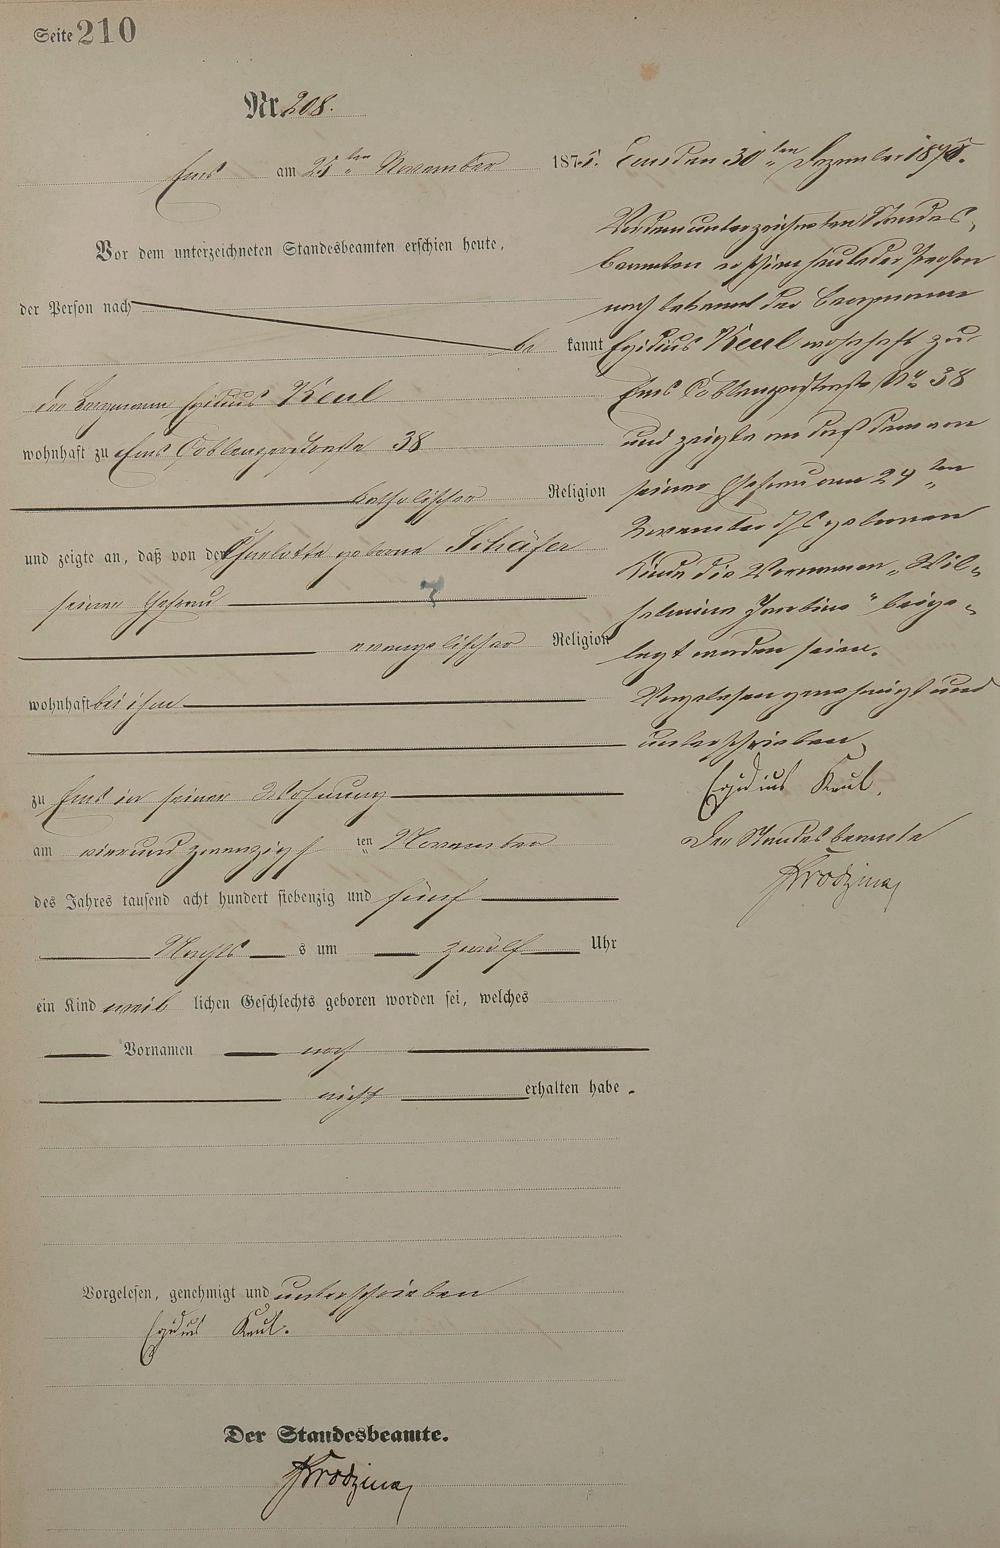 Seite 210
Nr. 208.
Ems am 25ten November 1875.
Vor dem unterzeichneten Standesbeamten erschien heute,
der Person nach
be kannt
der Bergmann Egidius Keul
wohnhaft zu Ems Coblenzerstraße 38
katholischer Religion
und zeigte an, daß von der Charlotte geborne Schäfer
seiner Ehefrau
evangelischer Religion
wohnhaft bei ihm
zu Ems in seiner Wohnung
am vierundzwanzigsten November
des Jahres tausend acht hundert siebenzig und fünf
Nachts um zwölf Uhr
ein Kind weib lichen Geschlechts geboren worden sei, welches
Vornamen noch
nicht erhalten habe.
Vorgelesen, genehmigt und unterschrieben
Egidius Keul.
Der Standesbeamte.
Ems den 30ten Dezember 1875.
Vor dem unterzeichneten Standes-
beamten erschien heute der Person
nach bekannt der Bergmann
Egidius Keul wohnhaft zu
Ems Coblenzerstraße No 38
und zeigte an daß dem von
seiner Ehefrau am 24ten
November d/s geborenen
Kinde die Vornamen „Wil-
helmine Jacobine" beige-
legt worden seien.
Vorgelesen genehmigt und
unterschrieben
Egidius Keul.
Der Standesbeamte